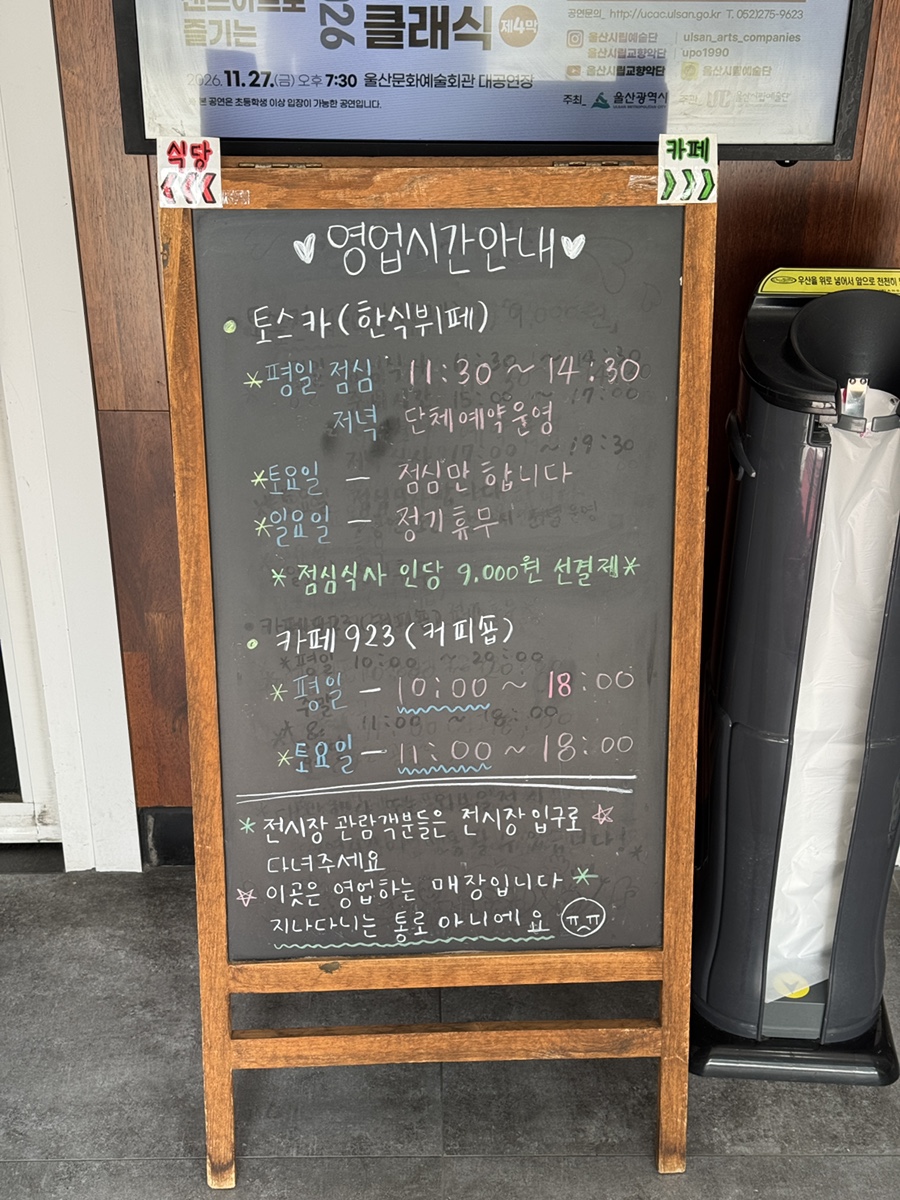 즐기는
2026
클래식
제4막
2026.11.27.(금) 오후 7:30 울산문화예술회관 대공연장
본 공연은 초등학생 이상 입장이 가능한 공연입니다.
공연문의_ http://ucac.ulsan.go.kr T. 052)275-9623
울산시립예술단 ulsan_arts_companies
울산시립교향악단 upo1990
울산시립교향악단 울산시립예술단
주최_ 울산광역시
식당
카페
영업시간안내
토스카(한식뷔페)
*평일 점심 11:30 ~ 14:30
저녁 단체예약운영
*토요일 – 점심만 합니다
*일요일 – 정기휴무
*점심식사 인당 9,000원 선결제*
카페923(커피숍)
*평일 – 10:00 ~ 18:00
*토요일 – 11:00 ~ 18:00
*전시장 관람객분들은 전시장입구로
다녀주세요
이곳은 영업하는 매장입니다*
지나다니는 통로 아니에요 ㅠㅠ
우산을 위로 넣어서 앞으로 천천히